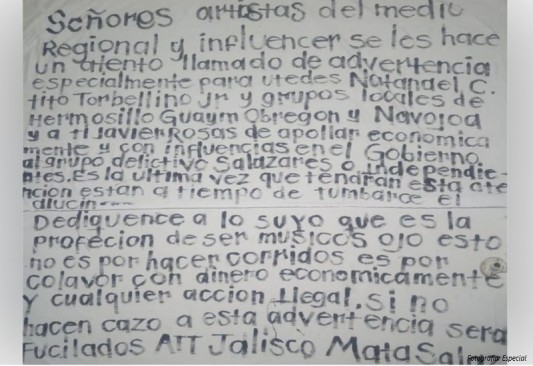 Señores artistas del medio
Regional y influencer se les hace
un atento llamado de advertencia
especialmente para utedes Natanael C.
tito Torbellino Jr y grupos locales de
Hermosillo Guaym Obregon y Navojoa
y a ti Javier Rosas de apollar economica
mente y con influencias en el Gobierno
al grupo delictivo Salazares o independie-
ntes. Es la ultima vez que tendran esta ate
ncion estan a tiempo de tumbarce el
alucin---
Dediquence a lo suyo que es la
profecion de ser musicos ojo esto
no es por hacer corridos es por
colavor con dinero economicamente
y cualquier accion Llegal. si no
hacen cazo a esta advertencia sera
Fucilados ATT Jalisco Mata
Fotografia: Especial